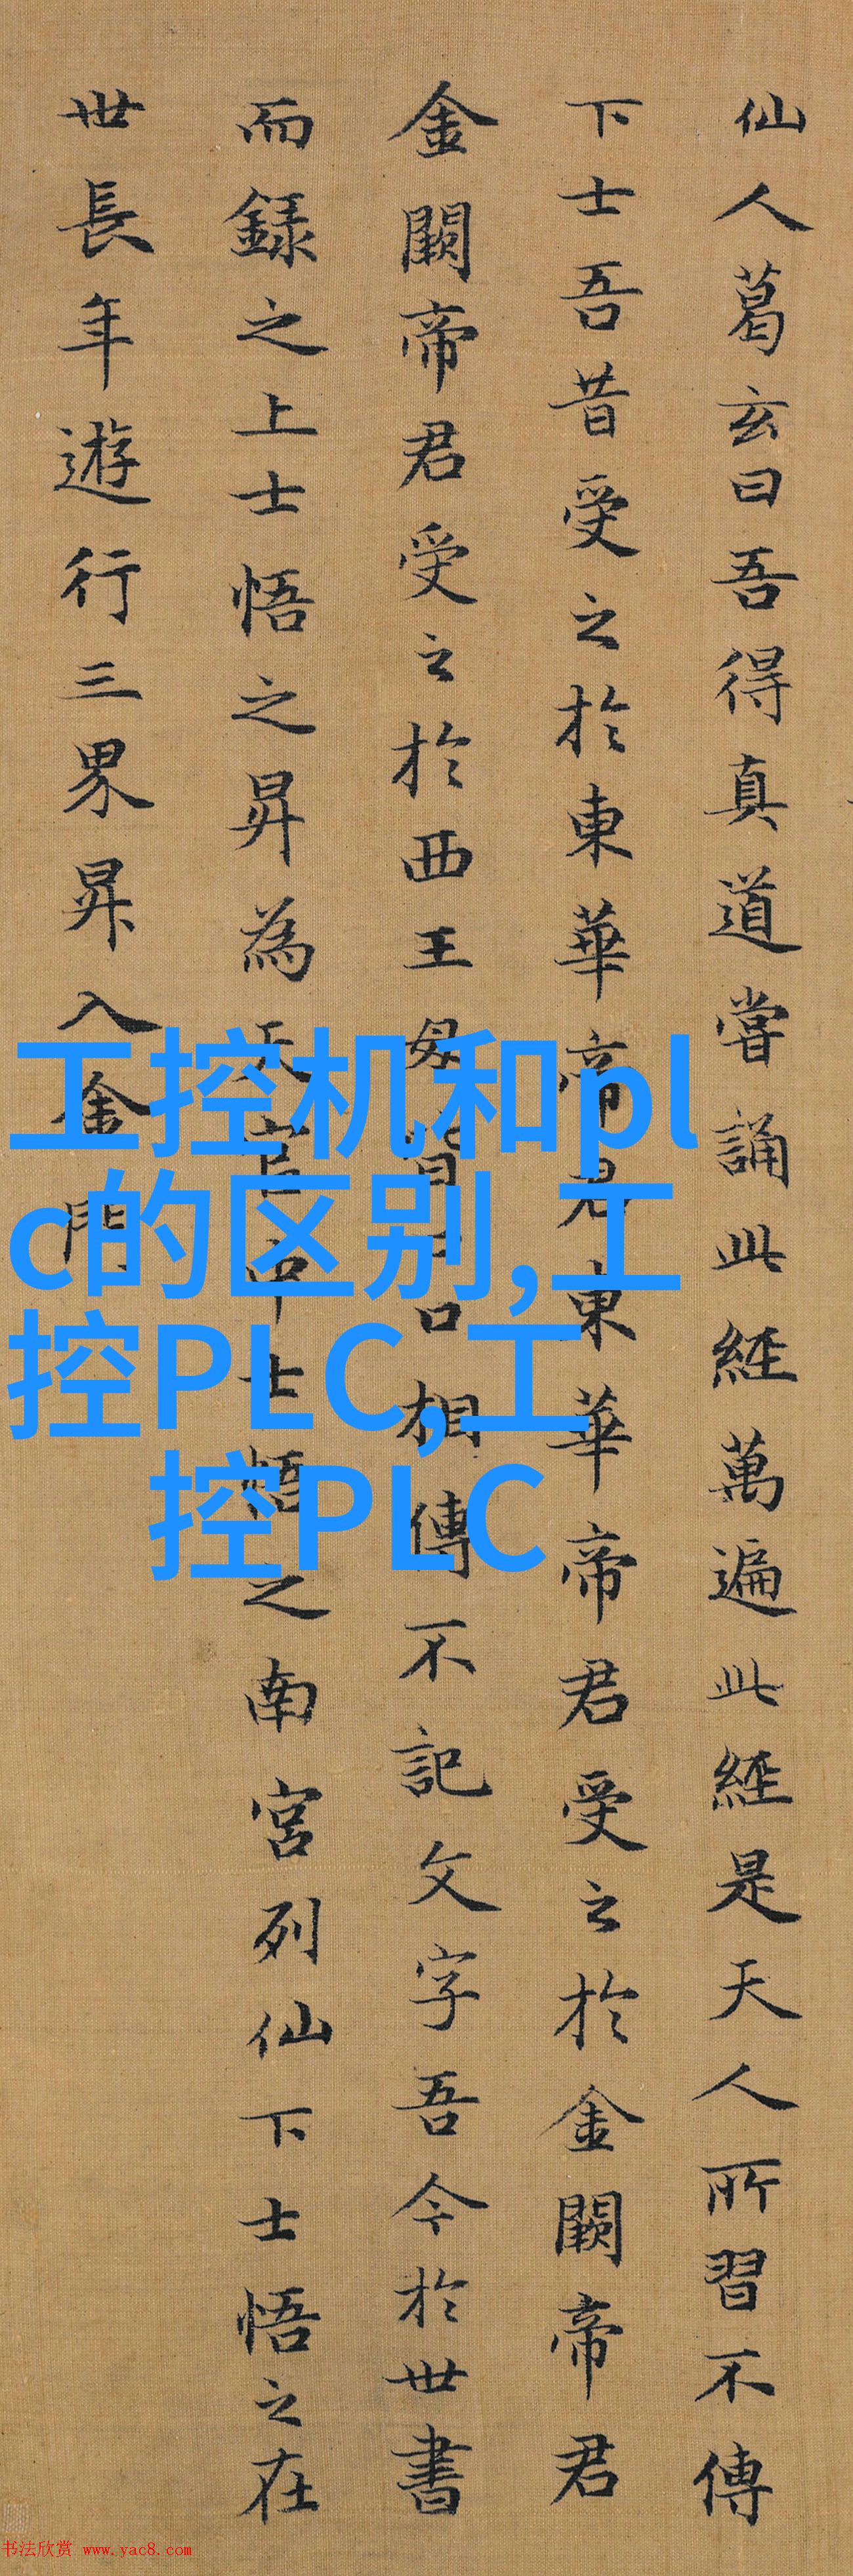 仙人葛玄曰吾得真道嘗誦此經萬遍此經是天人所習不傳
下士吾昔受之於東華帝君東華帝君受之於金闕帝君
金闕帝君受之於西王母皆口口相傳不記文字吾今於世書
而録之上士悟之昇為天官中士悟之南宮列仙下士悟之在
世長年遊行三界昇入金門
工控机和pl
c的区别,工
控PLC,工
控PLC
书法欣赏 www.yac8.com